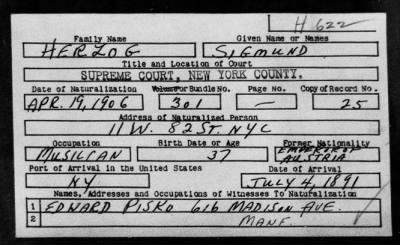 H 622
Family Name Given Name or Names
HERZOG SIGMUND
Title and Location of Court
SUPREME COURT, NEW YORK COUNTY.
Date of Naturalization Volume or Bundle No. Page No. Copy of Record No.
APR. 19, 1906 301 — 25
Address of Naturalized Person
11 W. 82 ST. NYC
Occupation Birth Date or Age Former Nationality
MUSICIAN 37 EMPEROR OF AUSTRIA
Port of Arrival in the United States Date of Arrival
NY JULY 4, 1891
Names, Addresses and Occupations of Witnesses To Naturalization
1 EDWARD PISKO 616 MADISON AVE.
2 MANF.